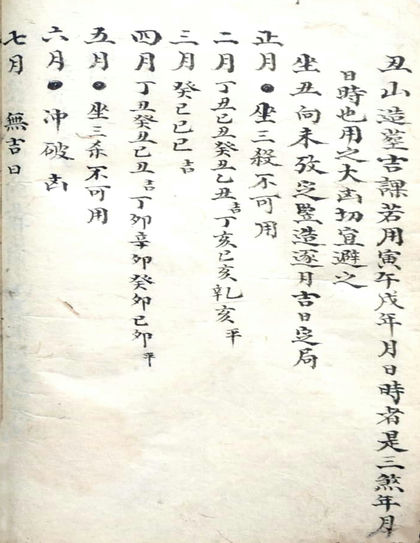 丑山造塟吉課若用寅午戌年月日時者是三煞年月
日時也用之大凶切宜避之
坐丑向未攷定監造逐月吉日定局
正月●坐三殺不可用
二月丁丑己丑癸丑乙丑吉丁亥己亥乹亥平
三月癸巳己巳吉
四月丁丑癸丑己丑吉丁卯辛卯癸卯己卯平
五月●坐三杀不可用
六月●冲破凶
七月 無吉日